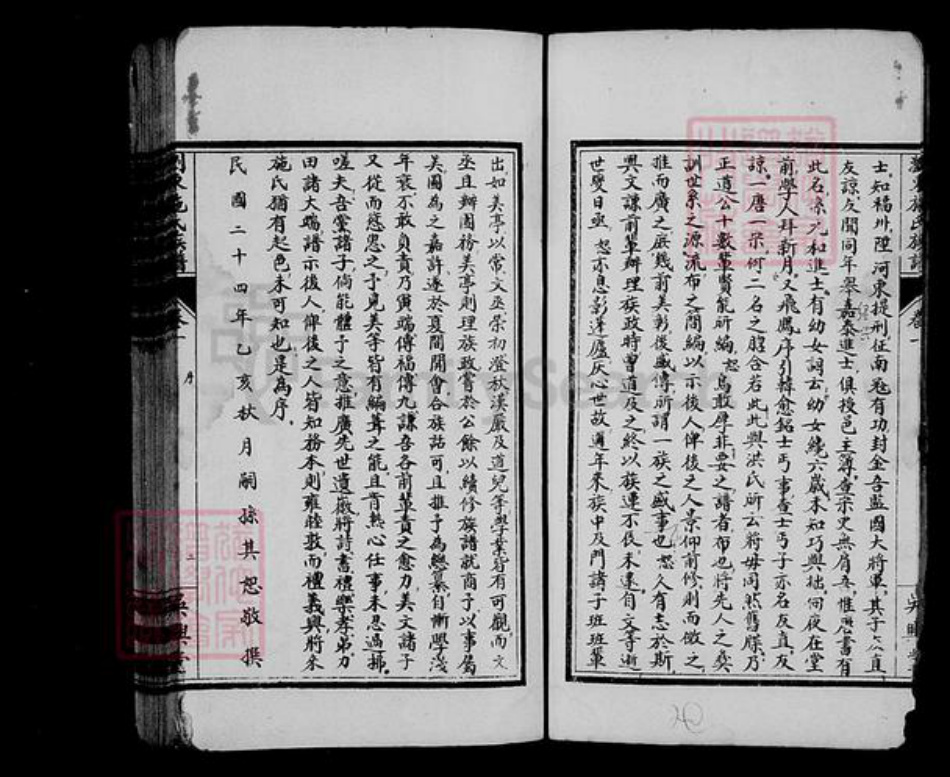 士。知福州。陞河東提刑。征南寇有功。封金吾藍國大將軍。其子六。直
友諒。友聞同年舉嘉泰進士。俱授邑主簿。查宗史無肩吾。惟歷書有
此名。係元和進士。有幼女詞云。幼女纔六歲。未知巧與拙。向夜在堂
前。學人拜新月。又飛鳳序引韓愈銘士丐。事查士丐子亦名友直。友
諒。一唐一宗。何二名之胳合若此。此與洪氏所云將毋同然舊牒。乃
正道公十數輩賢能所編。恕烏敢厚非。要之譜者布也。將先人之彝
訓。世系之源流。布之簡編。以示後人。俾後之人景仰前修。則而倣之
推而廣之。庶幾前美彰後盛傳。所謂一族之盛事也。恕久有志於斯。
與文謙前輩辦理族政時。曾道及之。終以族運不夷未遑。自文等逝
世。雙目亟。恕亦息影蓬廬。厭心世故。邇年來族中及門諸子。班班輩
出。如美亭。以常。文丞。榮初。澄秋。漢嚴及道兒等。學業皆有可觀。而文
丞且辦團務。美亭則理族政。嘗於公餘。以續修族譜就商。予以事屬
美國。為之嘉許。遂於夏間開會合族。詁可。且推予為總纂。自慚學淺
年衰。不敢負責。乃寅端傳福傳九謙吾各前輩責之愈力。美文諸子
又從而慫恿之。予見美等皆有編葺之能。且肯熱心仕事。未忍過拂。
嗟夫。吾黨諸子。倘能體予之意。推廣先世遺徽。將詩書禮樂孝弟力
田諸大端。譜示後人。俾後之人皆知務本。則雍睦敦。而禮義興。將來
施氏猶有起色。未可知也。是為序。
民國二十四年乙亥秋月嗣孫其恕敬撰
序
吳興堂